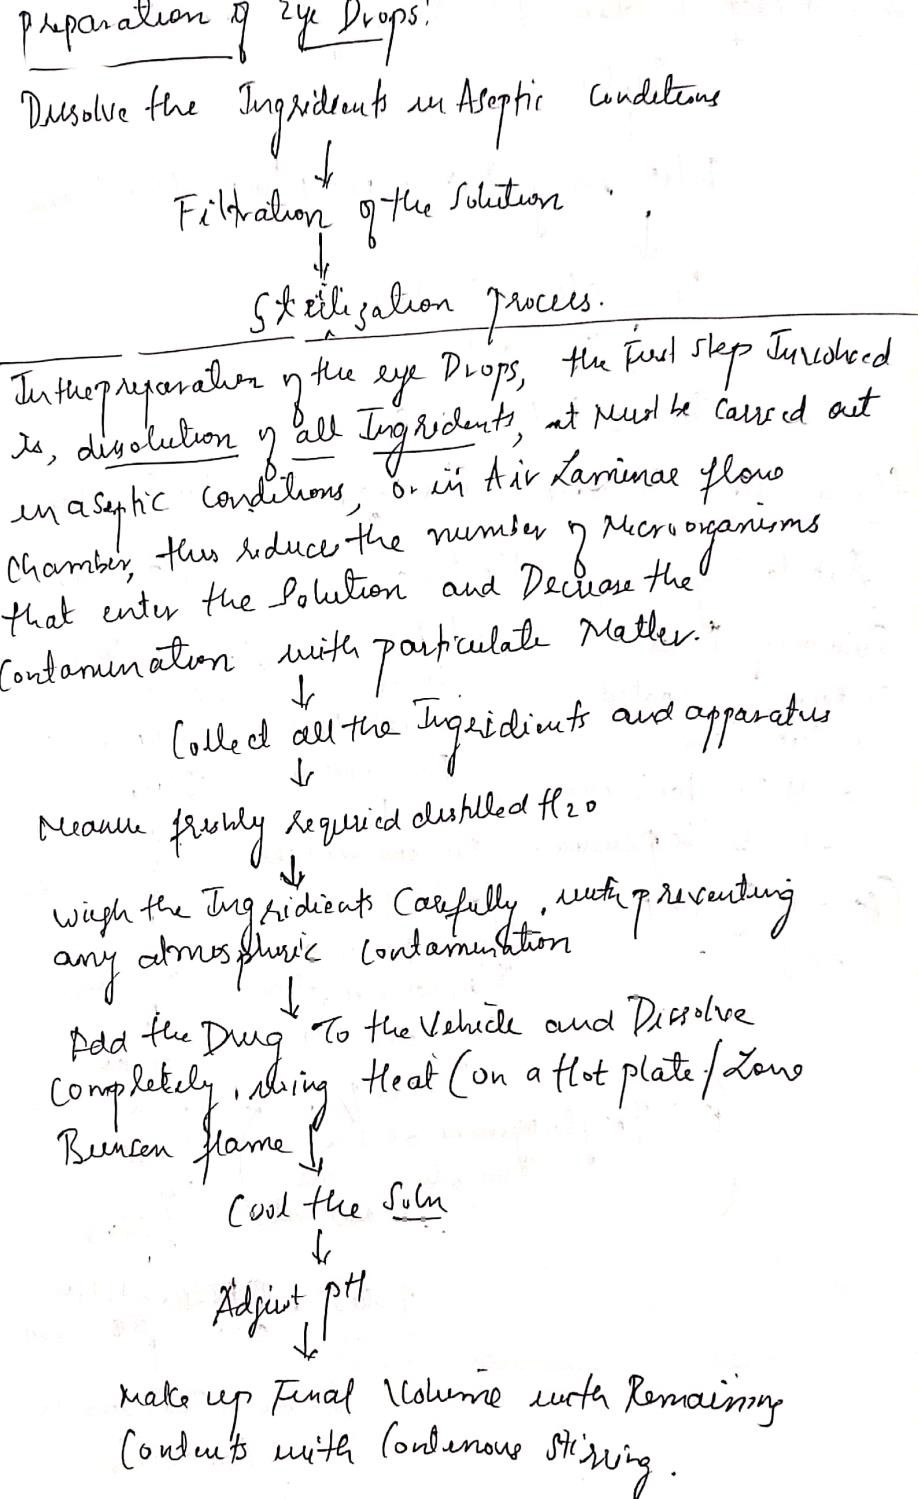 Preparation of Eye Drops:
Dissolve the Ingridients in Aseptic Conditions
↓
Filtration of the Solution
↓
Sterilization process.
In the preparation of the eye Drops, the First step Involved
is, dissolution of all Ingridents, it Must be carried out
in aseptic conditions, or in Air Laminae flow
Chamber, thus reduces the number of Microorganisms
that enter the Solution and Decrease the
Contamination with particulate Matter.
↓
Collect all the Ingridients and apparatus
↓
Measure freshly required distilled H2O
↓
Wiegh the Ingridients Carefully, with preventing
any atmospheric Contamination
↓
Add the Drug To the Vehicle and Dissolve
Completely, using Heat (on a Hot plate / Low
Bunsen flame)
↓
Cool the Soln
↓
Adjust pH
↓
Make up Final Volume with Remaining
Contents with Continous Stirring.